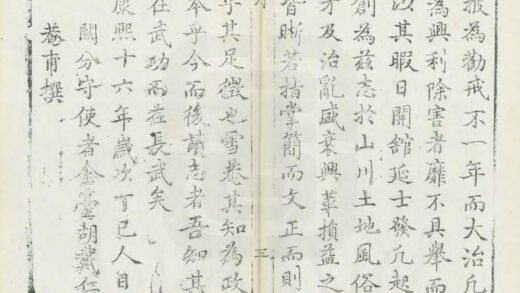 报為勸戒不一年而大治凡
為興利除害者靡不具舉而
以其暇日開舘延士發凡起
創為兹志於山川土地風俗
才及治亂盛衰興革損益之
皆晰若指掌簡而文正而則
乎其足徴也雪菴其知為政
本乎今而後讀志者吾知其
在武功而在長武矣
康熈十六年歲次丁巳人日
關分守使者金臺胡戴仁
菴甫撰
三